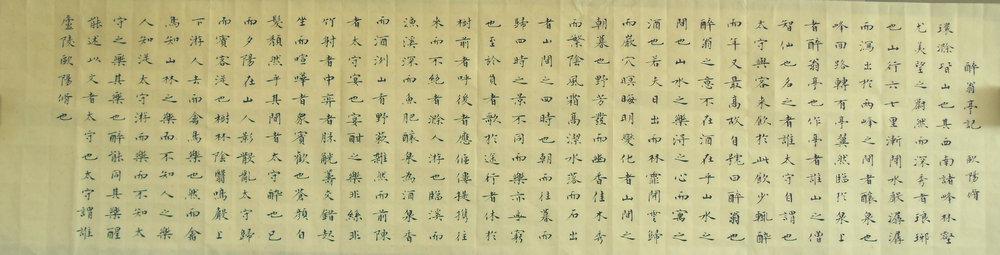 醉翁亭記 歐陽脩
環滁皆山也其西南諸峰林壑
尤美望之蔚然而深秀者琅琊
也山行六七里漸聞水聲潺潺
而瀉出於兩峰之間者釀泉也
峰回路轉有亭翼然臨於泉上
者醉翁亭也作亭者誰山之僧
智仙也名之者誰太守自謂也
太守與客來飲於此飲少輒醉
而年又最高故自號曰醉翁也
醉翁之意不在酒在乎山水之
間也山水之樂得之心而寓之
酒也若夫日出而林霏開雲歸
而巖穴暝晦明變化者山間之
朝暮也野芳發而幽香佳木秀
而繁陰風霜高潔水落而石出
者山間之四時也朝而往暮而
歸四時之景不同而樂亦無窮
也至於負者歌於途行者休於
樹前者呼後者應傴僂提攜往
來而不絕者滁人游也臨溪而
漁溪深而魚肥釀泉為酒泉香
而酒洌山肴野蔌雜然而前陳
者太守宴也宴酣之樂非絲非
竹射者中弈者勝觥籌交錯起
坐而喧嘩者眾賓歡也蒼顏白
髮頹然乎其間者太守醉也已
而夕陽在山人影散亂太守歸
而賓客從也樹林陰翳鳴聲上
下游人去而禽鳥樂也然而禽
鳥知山林之樂而不知人之樂
人知從太守游而樂而不知太
守之樂其樂也醉能同其樂醒
能述以文者太守也太守謂誰
廬陵歐陽脩也